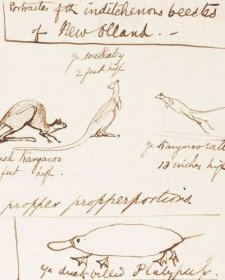 Portraites of th inditchenous beestes
of New Olland. —
ye wallaby
2 feet high
Kangaroo
feet high.
ye Kangaroo ratte
13 inches high
propper propperportions.
ye duck billed Platypusse.